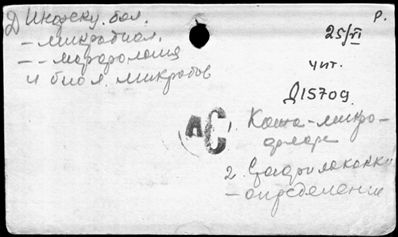 Д Инфекц. бол.
– микробиол.
– – морфология
и биол. микробов
Р.
25/VI
чит.
Д15709
АС
1. Кожа – микро-
флора
2. Стафилококки
– определение